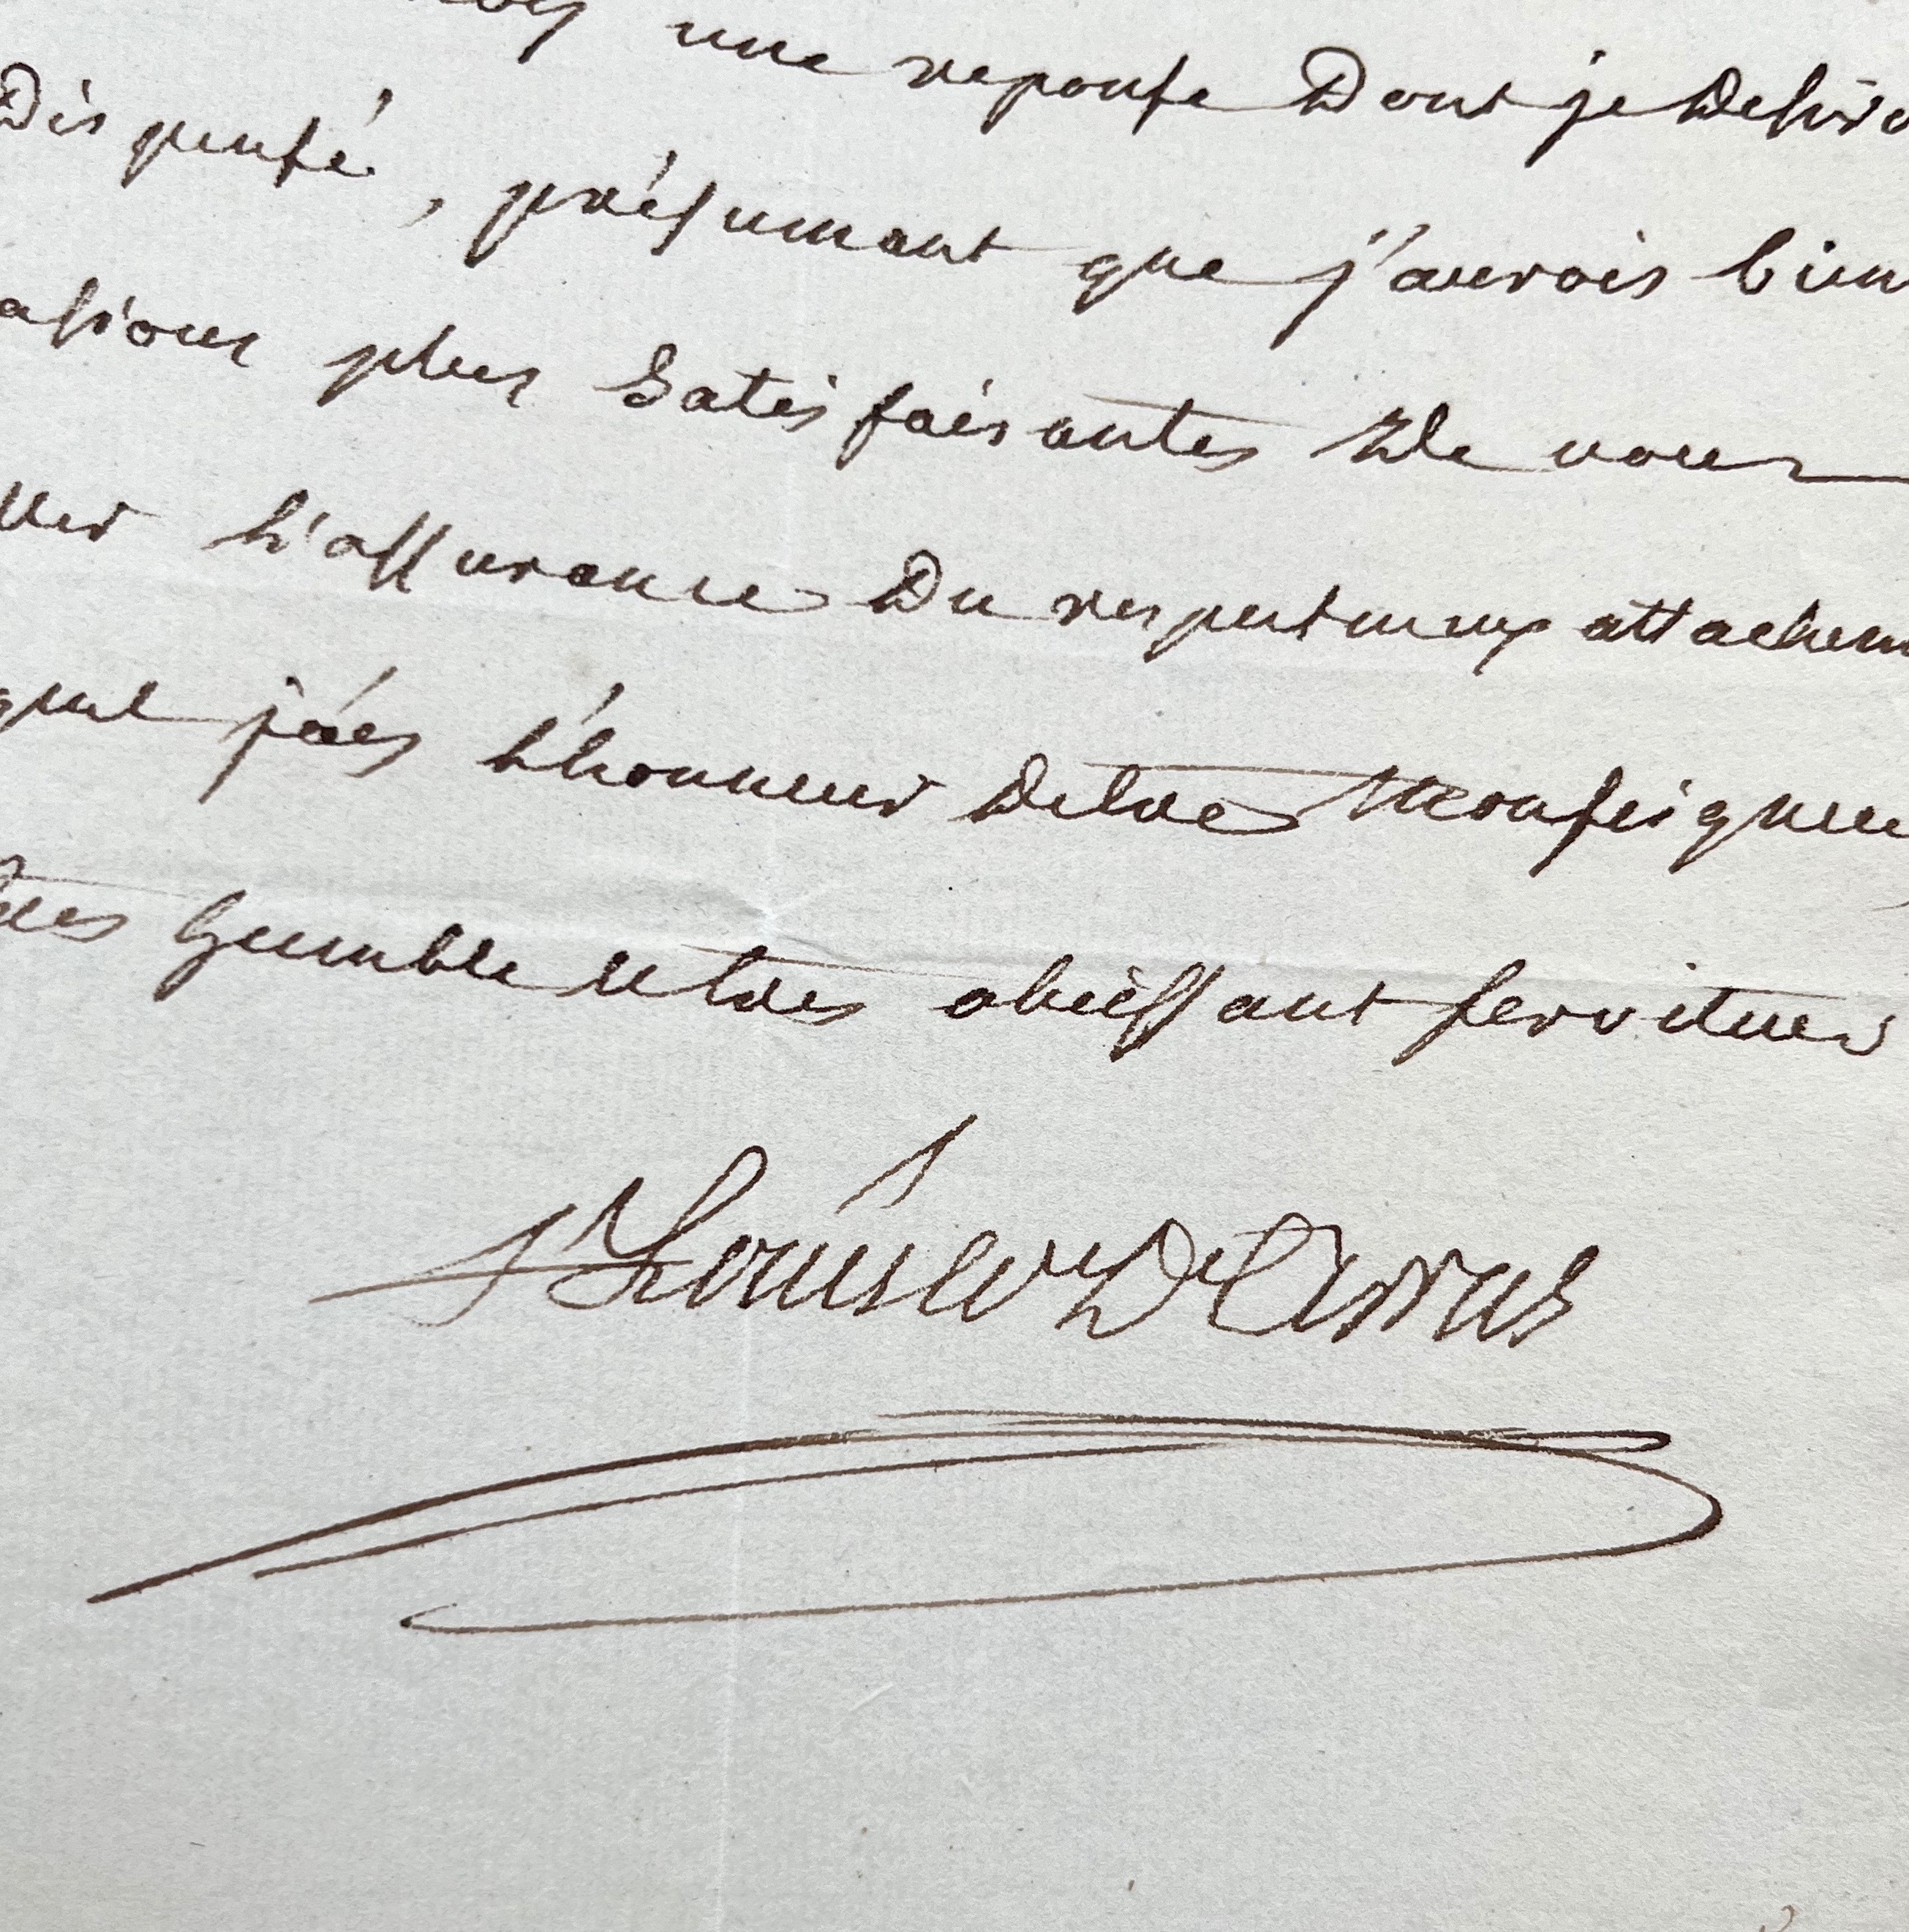 une reponse Dont je Desire
Dispensé, présumant que j'aurois bien
asions plus Satisfaisantes De vous
ller L'assurance Du respectueux attachem
quel j'ay L'honneur Detre Monseigneu
tres humble et tres obeissant serviteur